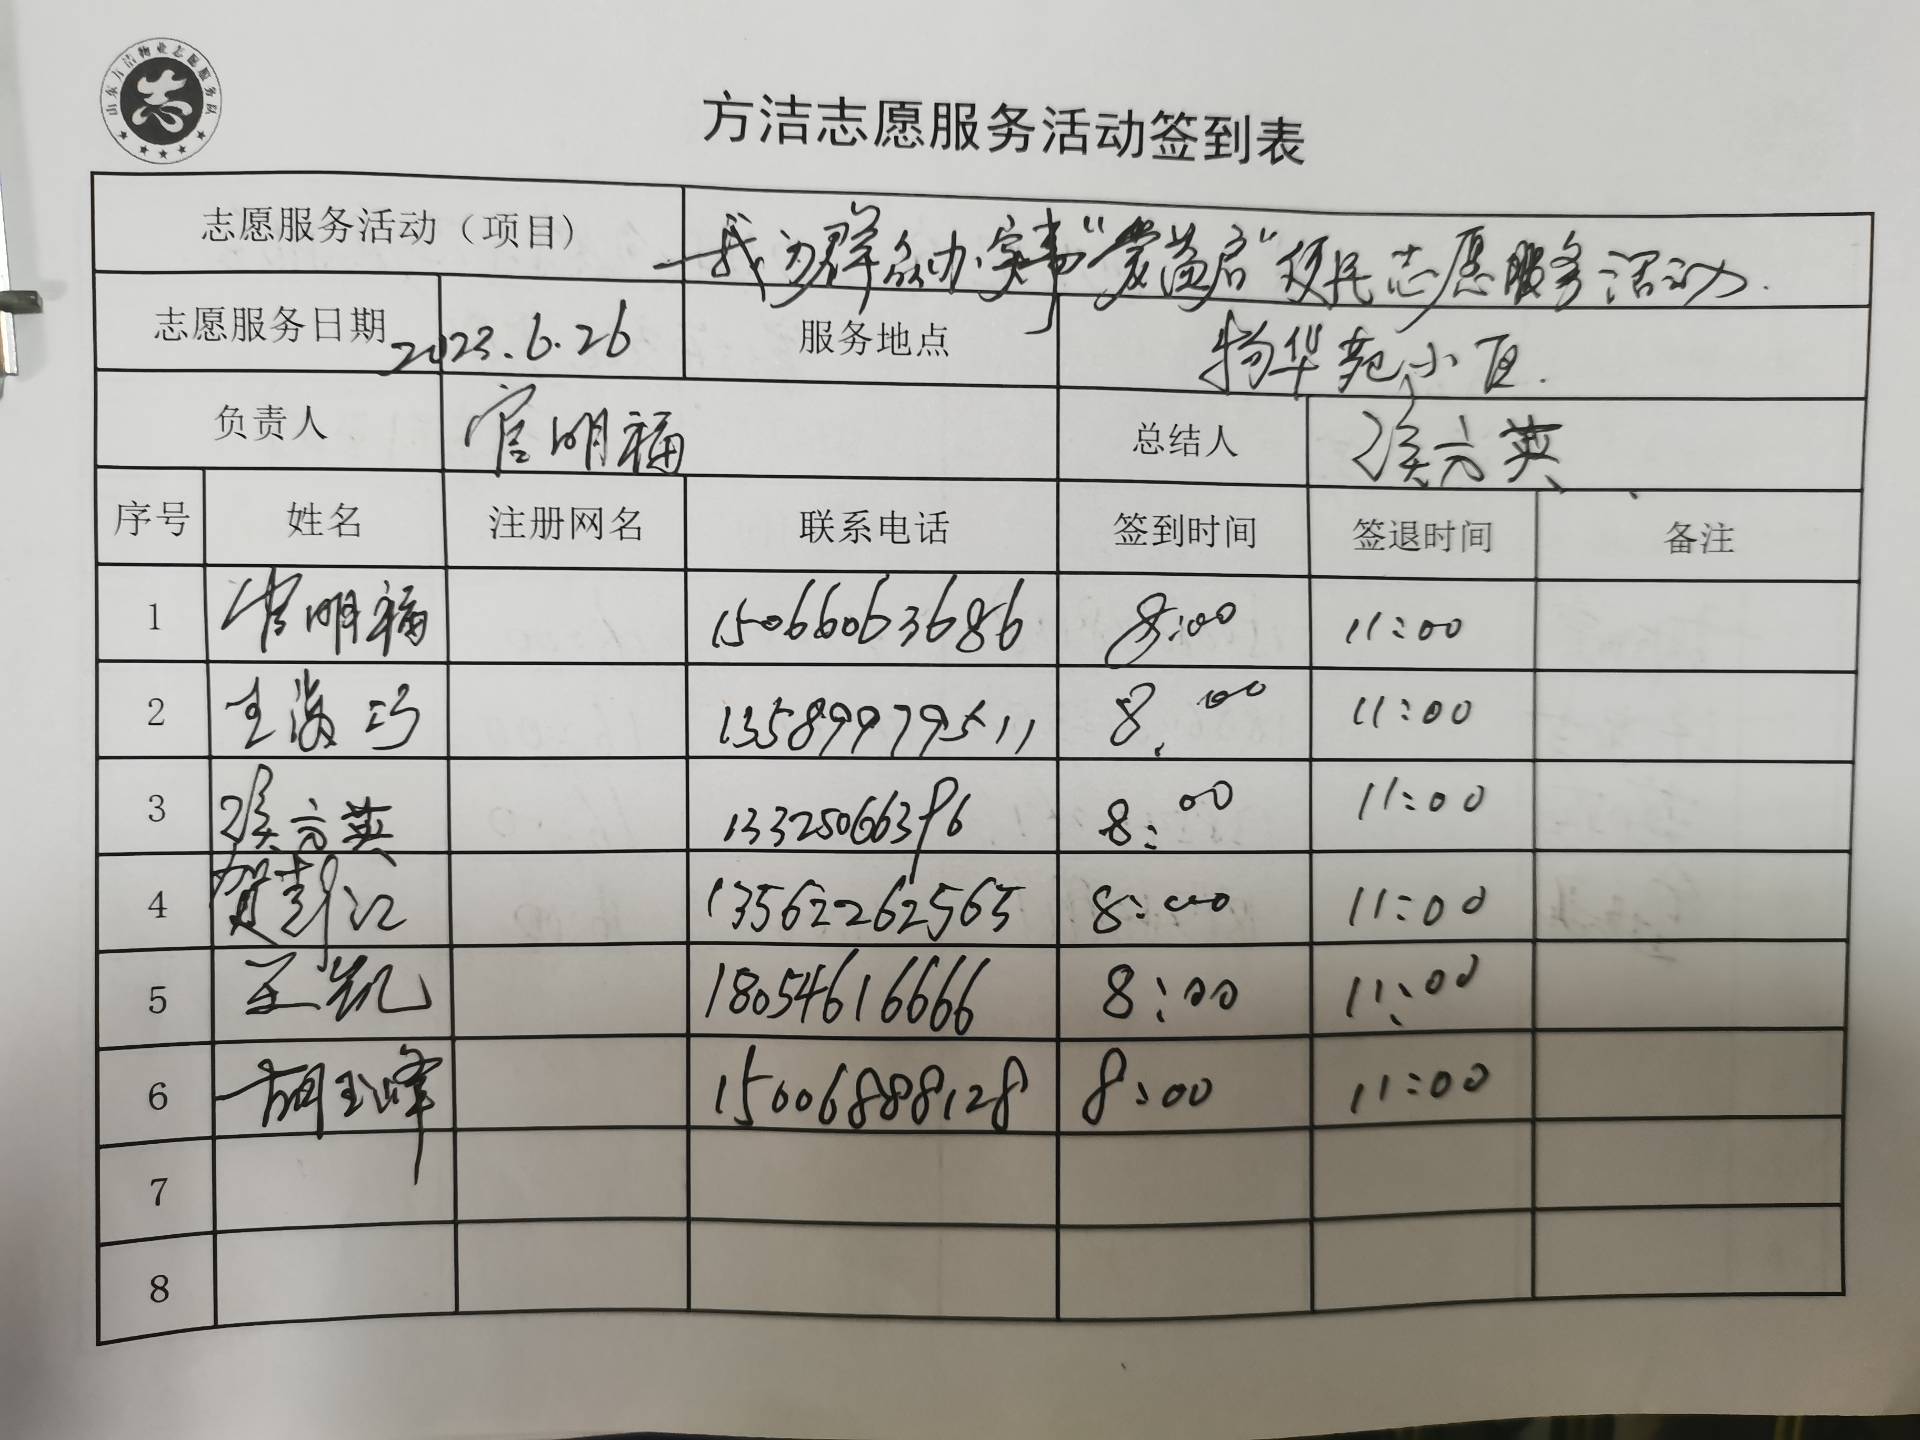 山东方洁物业志愿服务队
志
方洁志愿服务活动签到表
志愿服务活动（项目） 我为群众办实事“爱益启”便民志愿服务活动.
志愿服务日期 2023.6.26 服务地点 物华苑小区.
负责人 官明福 总结人 侯六英
序号 姓名 注册网名 联系电话 签到时间 签退时间 备注
1 官明福 15066063686 8:00 11:00
2 王海巧 13589979511 8:00 11:00
3 侯六英 13325066396 8:00 11:00
4 贺彭江 13562262565 8:00 11:00
5 王凯 18054616666 8:00 11:00
6 胡玉峰 15006888128 8:00 11:00
7
8